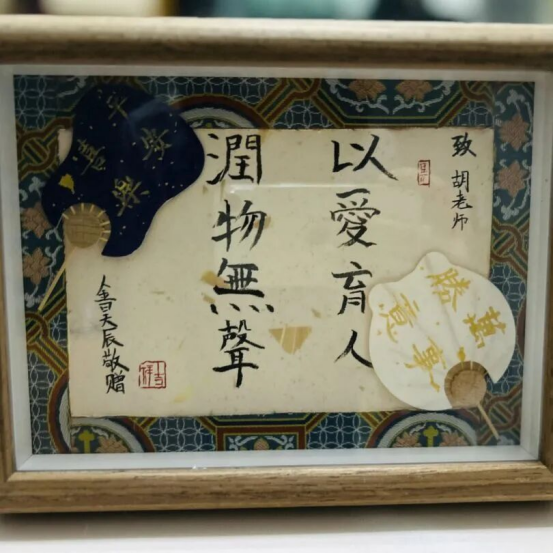 致 胡老师
以愛育人
潤物無聲
平安
喜樂
萬事
勝意
辰敬赠